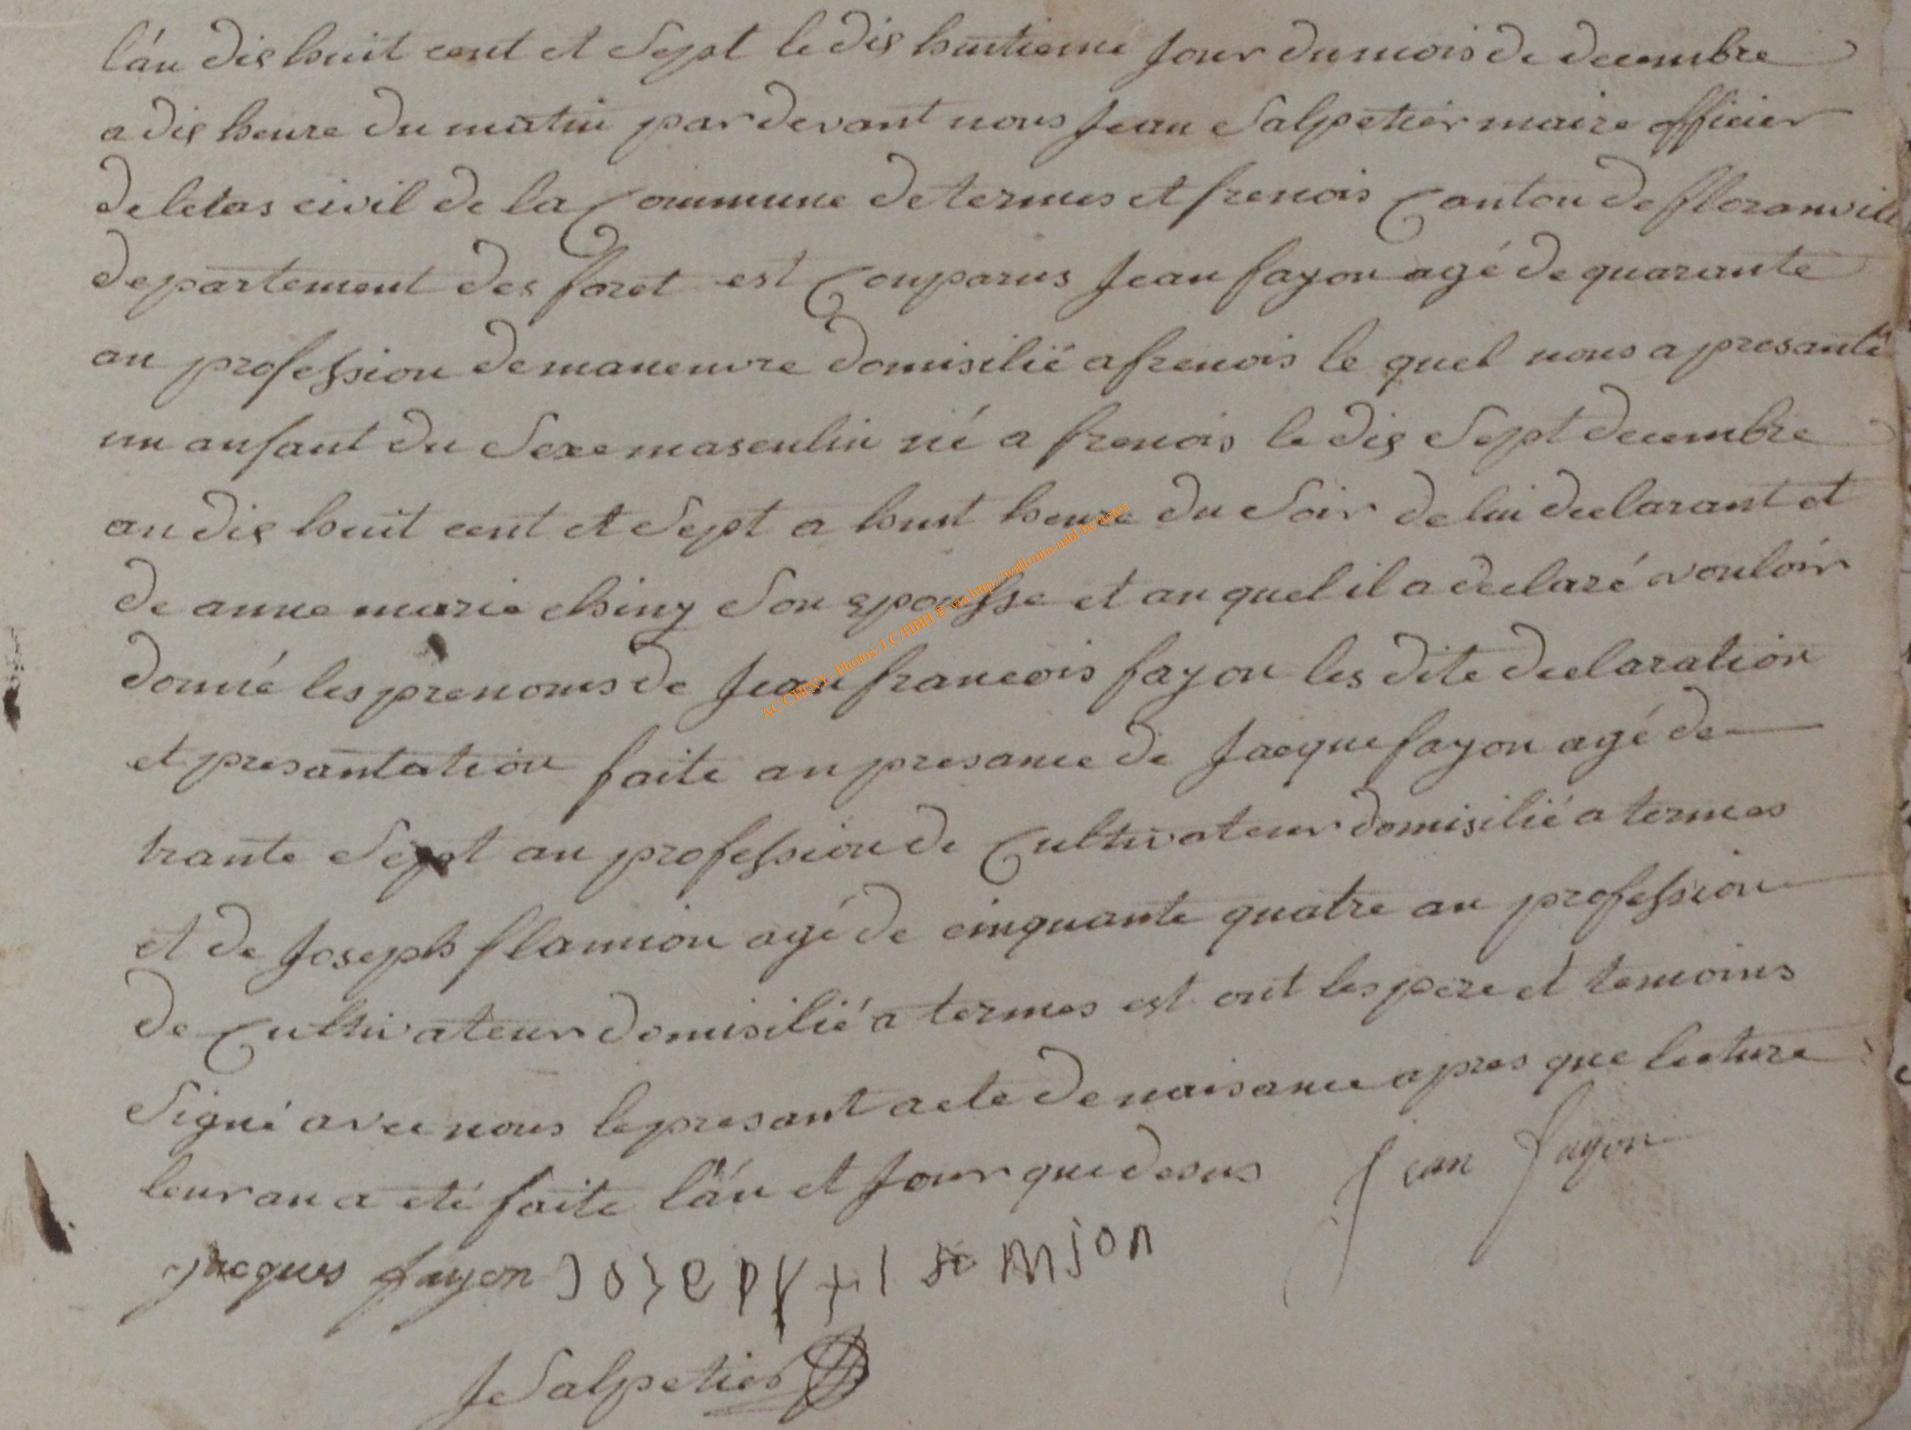 l'an dix huit cent et Sept le dix huitieme Jour du mois de decembre
a dix heure du matin par devant nous Jean Salpetier maire officier
de letas civil de la Commune de termes et frenois Canton de floranvill
departement des foret est Comparus Jean fayon agé de quarante
an profession de maneuvre domisilié a frenois le quel nous a presanté
un anfant du Sexe masculin né a frenois le dix Sept decembre
an dix huit cent et Sept a huit heure du Soir de lui declarant et
de anne marie chiny Son epousse et au quel il a declaré vouloir
donné les prenoms de Jean francois fayon les dite declaration
et presantation faite an presance de Jacque fayon agé de
trante Sept an profession de Cultivateur domisilié a termes
et de Joseph flamion agé de cinquante quatre an profession
de Cultivateur domisilié a termes est ont les pere et temoins
Signé avec nous le presant acte de naisance apres que lecture
leur an a eté faite l'an et Jour que desus Jean fayon
jacques fayon Josepf flamion
J Salpetier